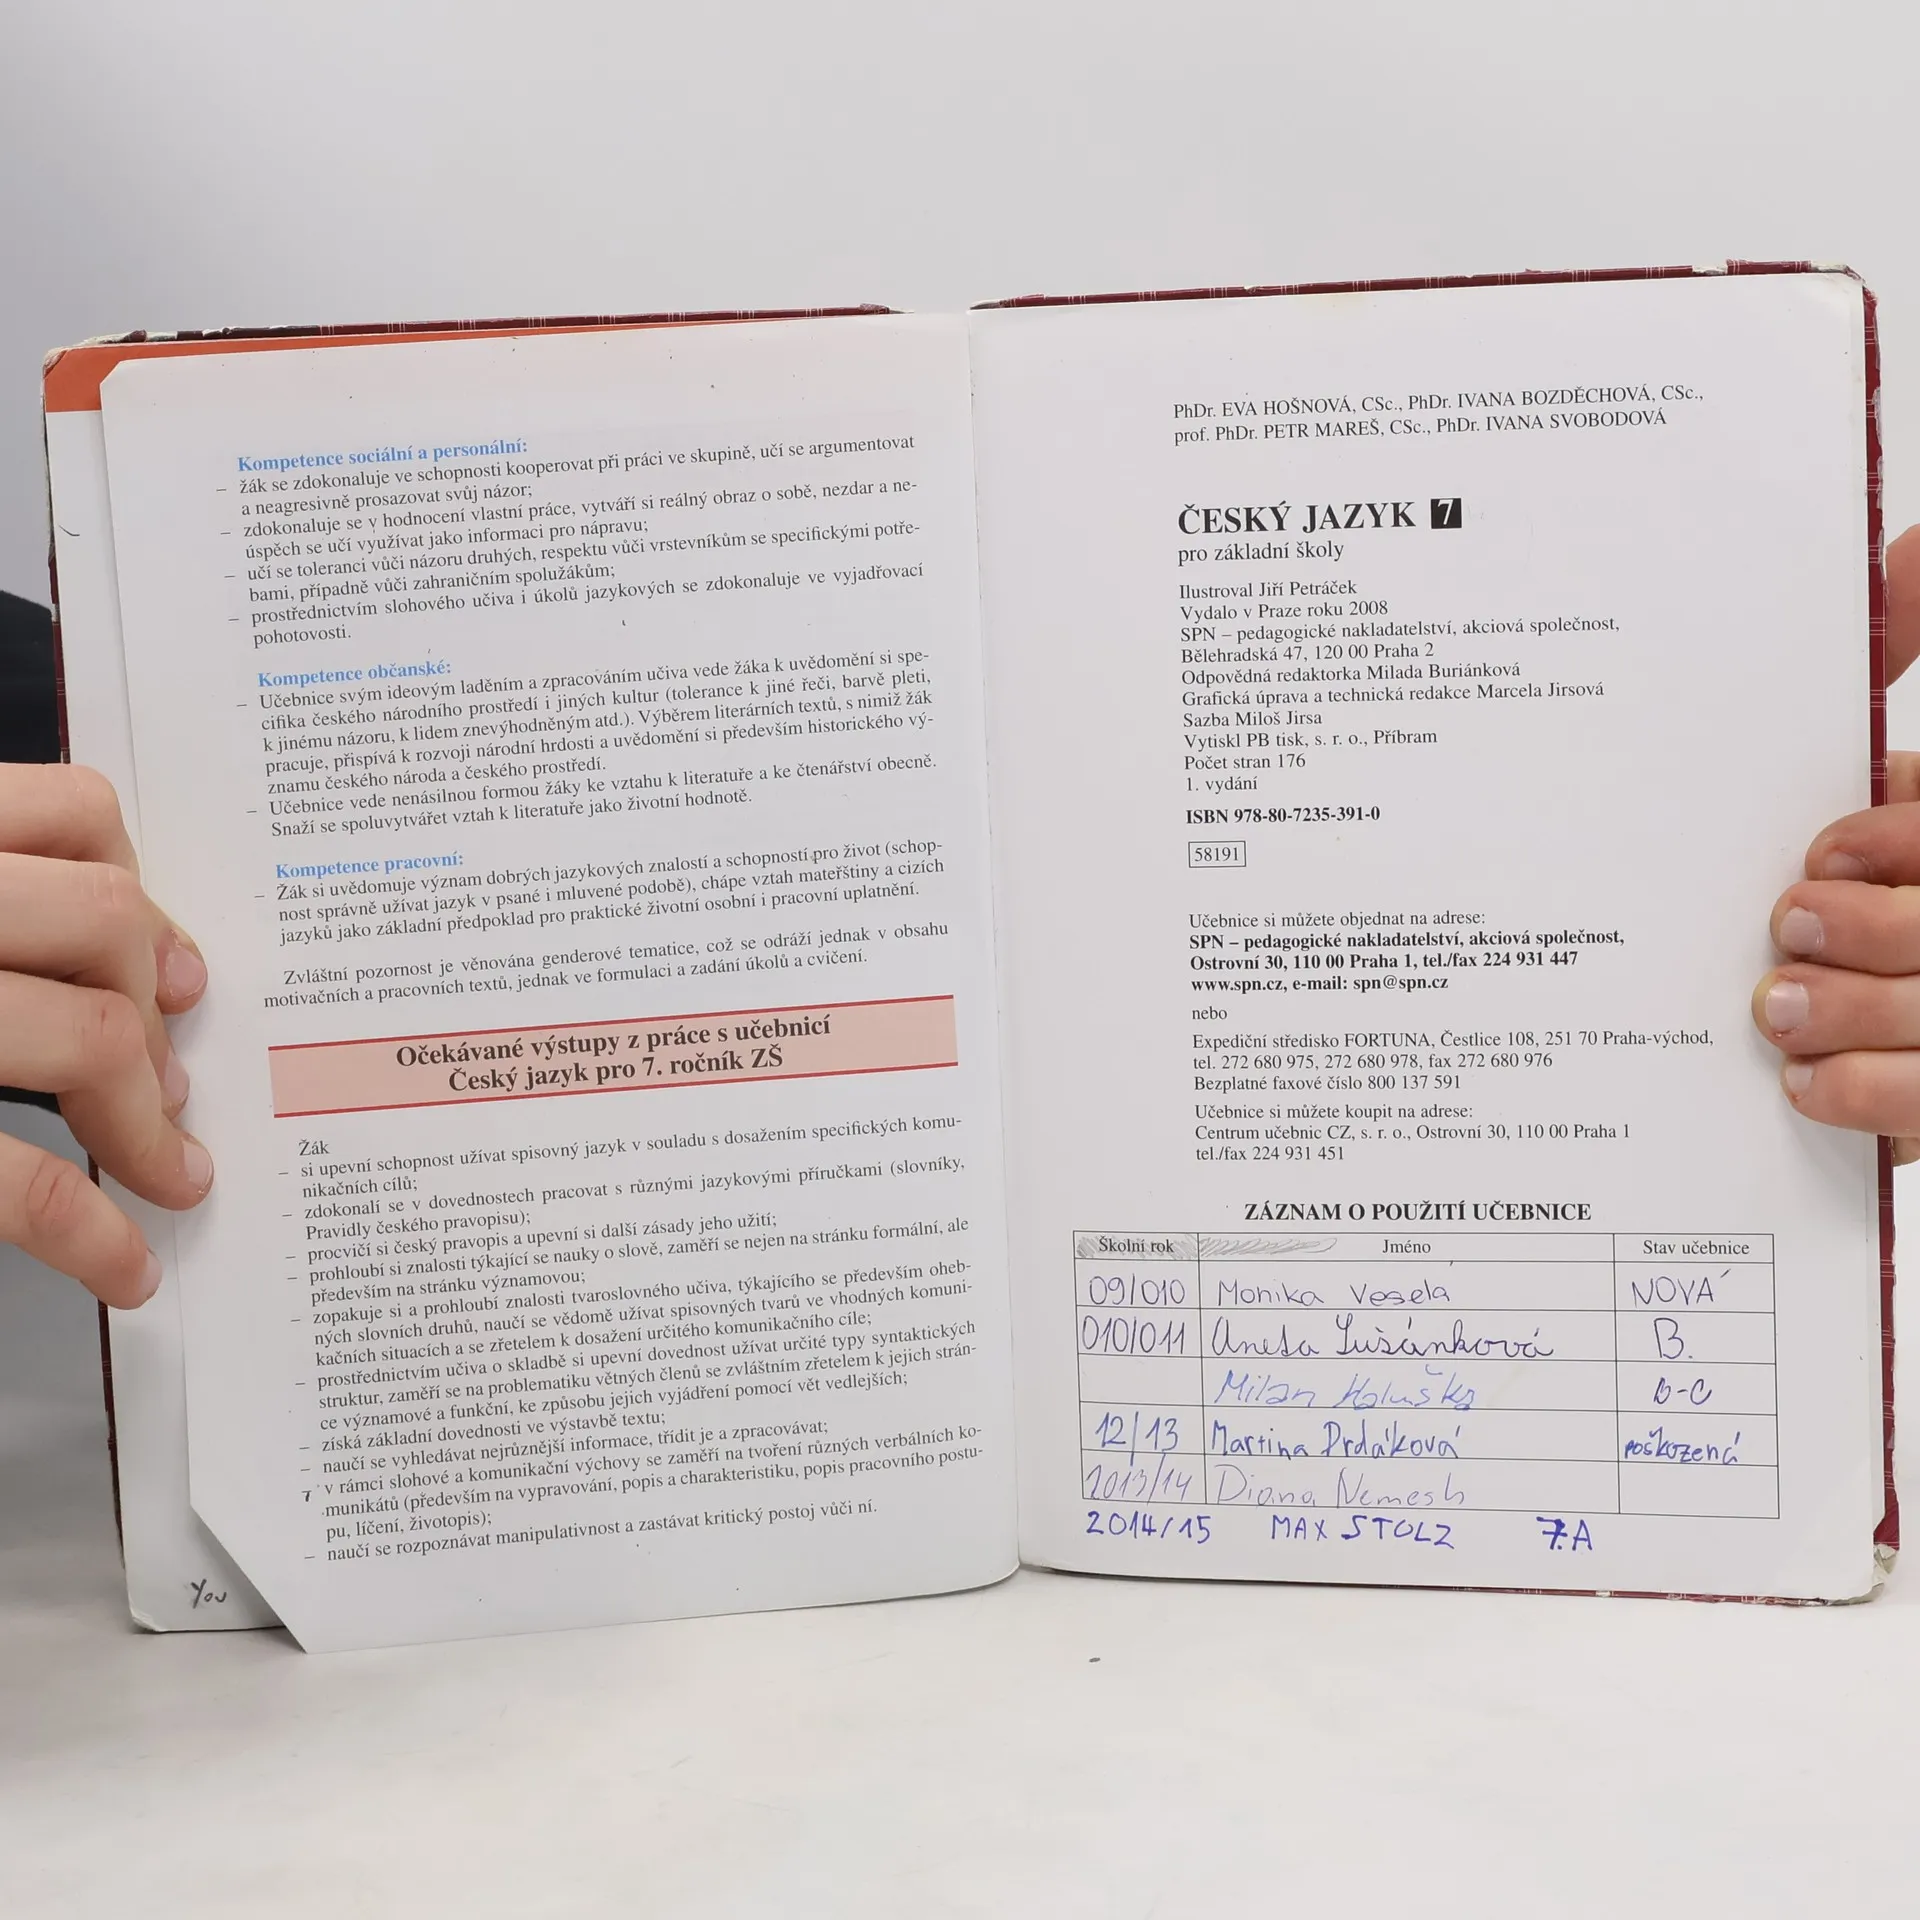 Kompetence sociální a personální:
– žák se zdokonaluje ve schopnosti kooperovat při práci ve skupině, učí se argumentovat
a neagresivně prosazovat svůj názor;
– zdokonaluje se v hodnocení vlastní práce, vytváří si reálný obraz o sobě, nezdar a ne-
úspěch se učí využívat jako informaci pro nápravu;
– učí se toleranci vůči názoru druhých, respektu vůči vrstevníkům se specifickými potře-
bami, případně vůči zahraničním spolužákům;
– prostřednictvím slohového učiva i úkolů jazykových se zdokonaluje ve vyjadřovací
pohotovosti.
Kompetence občanské:
– Učebnice svým ideovým laděním a zpracováním učiva vede žáka k uvědomění si spe-
cifika českého národního prostředí i jiných kultur (tolerance k jiné řeči, barvě pleti,
k jinému názoru, k lidem znevýhodněným atd.). Výběrem literárních textů, s nimiž žák
pracuje, přispívá k rozvoji národní hrdosti a uvědomění si především historického vý-
znamu českého národa a českého prostředí.
– Učebnice vede nenásilnou formou žáky ke vztahu k literatuře a ke čtenářství obecně.
Snaží se spoluvytvářet vztah k literatuře jako životní hodnotě.
Kompetence pracovní:
– Žák si uvědomuje význam dobrých jazykových znalostí a schopností pro život (schop-
nost správně užívat jazyk v psané i mluvené podobě), chápe vztah mateřštiny a cizích
jazyků jako základní předpoklad pro praktické životní osobní i pracovní uplatnění.
Zvláštní pozornost je věnována genderové tematice, což se odráží jednak v obsahu
motivačních a pracovních textů, jednak ve formulaci a zadání úkolů a cvičení.
Očekávané výstupy z práce s učebnicí
Český jazyk pro 7. ročník ZŠ
Žák
– si upevní schopnost užívat spisovný jazyk v souladu s dosažením specifických komu-
nikačních cílů;
– zdokonalí se v dovednostech pracovat s různými jazykovými příručkami (slovníky,
Pravidly českého pravopisu);
– procvičí si český pravopis a upevní si další zásady jeho užití;
– prohloubí si znalosti týkající se nauky o slově, zaměří se nejen na stránku formální, ale
především na stránku významovou;
– zopakuje si a prohloubí znalosti tvaroslovného učiva, týkajícího se především oheb-
ných slovních druhů, naučí se vědomě užívat spisovných tvarů ve vhodných komuni-
kačních situacích a se zřetelem k dosažení určitého komunikačního cíle;
– prostřednictvím učiva o skladbě si upevní dovednost užívat určité typy syntaktických
struktur, zaměří se na problematiku větných členů se zvláštním zřetelem k jejich strán-
ce významové a funkční, ke způsobu jejich vyjádření pomocí vět vedlejších;
– získá základní dovednosti ve výstavbě textu;
– naučí se vyhledávat nejrůznější informace, třídit je a zpracovávat;
– v rámci slohové a komunikační výchovy se zaměří na tvoření různých verbálních ko-
munikátů (především na vypravování, popis a charakteristiku, popis pracovního postu-
pu, líčení, životopis);
– naučí se rozpoznávat manipulativnost a zastávat kritický postoj vůči ní.
You
PhDr. EVA HOŠNOVÁ, CSc., PhDr. IVANA BOZDĚCHOVÁ, CSc.,
prof. PhDr. PETR MAREŠ, CSc., PhDr. IVANA SVOBODOVÁ
ČESKÝ JAZYK 7
pro základní školy
Ilustroval Jiří Petráček
Vydalo v Praze roku 2008
SPN – pedagogické nakladatelství, akciová společnost,
Bělehradská 47, 120 00 Praha 2
Odpovědná redaktorka Milada Buriánková
Grafická úprava a technická redakce Marcela Jirsová
Sazba Miloš Jirsa
Vytiskl PB tisk, s. r. o., Příbram
Počet stran 176
1. vydání
ISBN 978-80-7235-391-0
58191
Učebnice si můžete objednat na adrese:
SPN – pedagogické nakladatelství, akciová společnost,
Ostrovní 30, 110 00 Praha 1, tel./fax 224 931 447
www.spn.cz, e-mail: spn@spn.cz
nebo
Expediční středisko FORTUNA, Čestlice 108, 251 70 Praha-východ,
tel. 272 680 975, 272 680 978, fax 272 680 976
Bezplatné faxové číslo 800 137 591
Učebnice si můžete koupit na adrese:
Centrum učebnic CZ, s. r. o., Ostrovní 30, 110 00 Praha 1
tel./fax 224 931 451
ZÁZNAM O POUŽITÍ UČEBNICE
Školní rok Jméno Stav učebnice
09/010 Monika Veselá NOVÁ
010/011 Aneta Lušánková B.
Milan Holuška B-C
12/13 Martina Drdáková poškozená
2013/14 Diana Nemesh
2014/15 MAX STOLZ 7.A